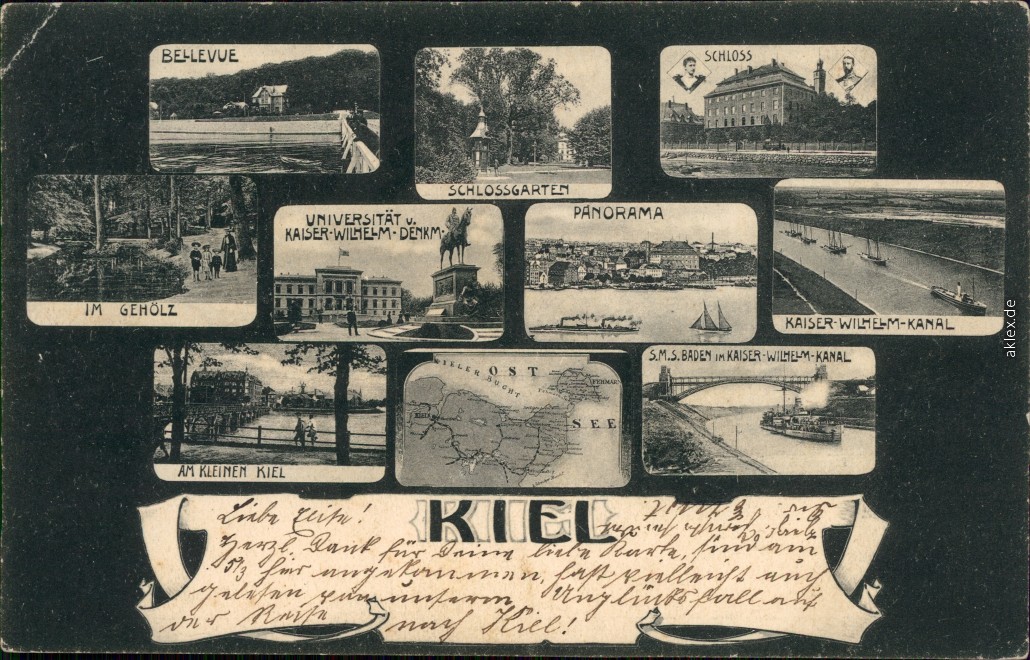 BELLEVUE
SCHLOSSGARTEN
SCHLOSS
IM GEHÖLZ
UNIVERSITÄT u.
KAISER-WILHELM-DENKM.
PANORAMA
KAISER-WILHELM-KANAL
AM KLEINEN KIEL
KIELER BUCHT
OST
SEE
FEHMARN
KIEL
S.M.S. BADEN IM KAISER-WILHELM-KANAL
KIEL
Liebe
Herzl. Dank für Deine liebe Karte, sind am
5/3 hier angekommen, hast vielleicht auch
gelesen von unserm Unglücksfall auf
der Reise nach Kiel!
aklex.de